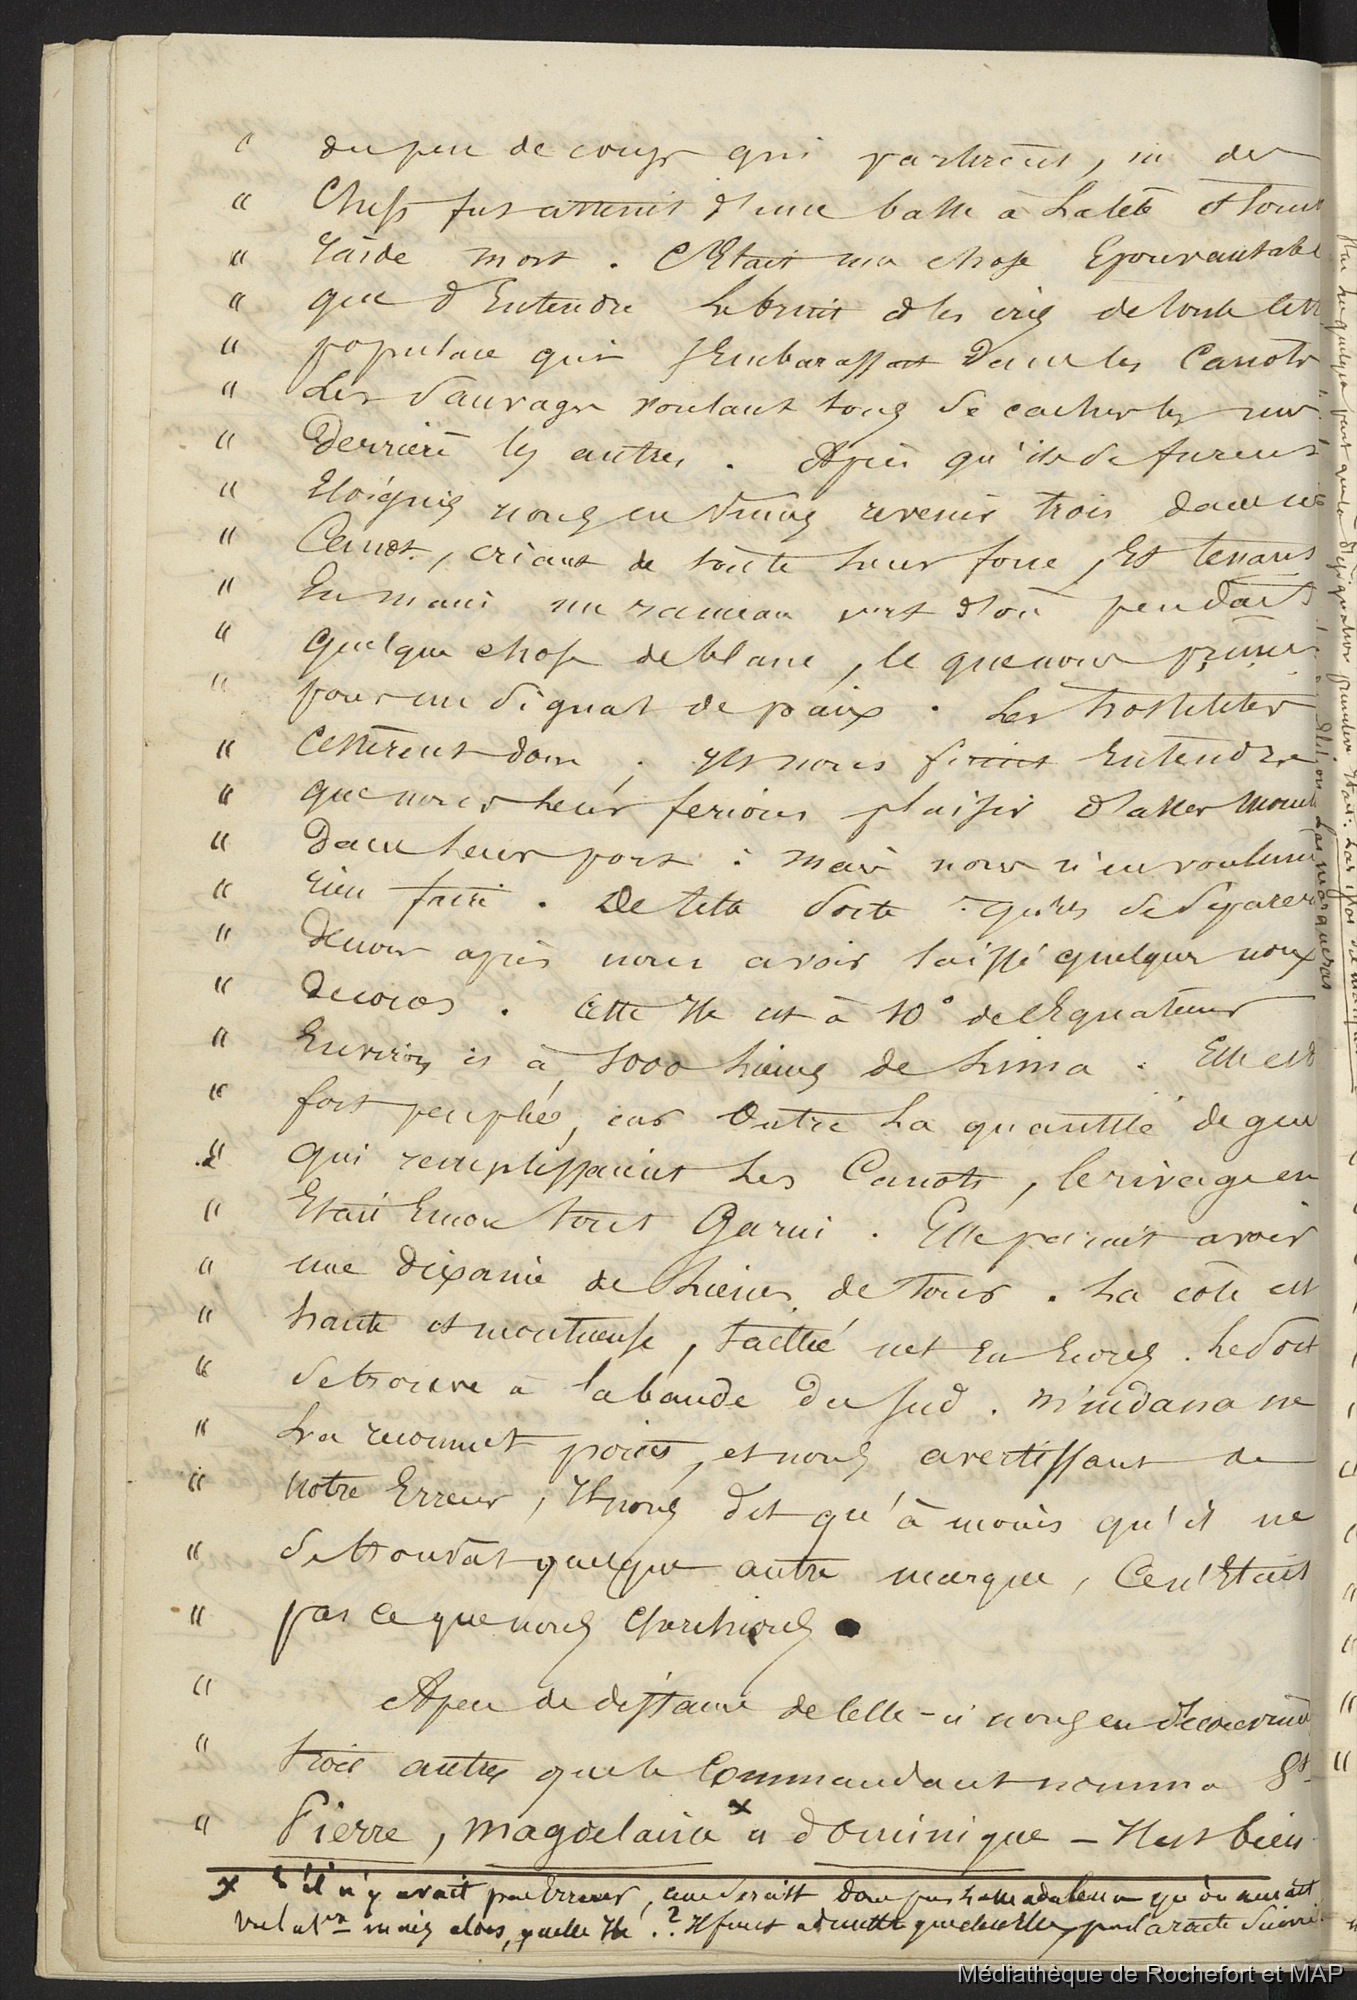 " du peu de coups qui partirent, un des
" Chefs fut atteint d'une balle à la tête et tomba
" raide mort. C'Etait une chose Epouvantable
" que d'Entendre le bruit et les cris de toute cette
" populace qui s'Embarassait dans les Canots
" Les Sauvages voulant tous se cacher les uns
" Derrière les autres. Après qu'ils se furent
" Eloignés nous en vimes revenir trois dans un
" Canot, criant de toute leur force, Et tenant
" En main un rameau vert d'où pendait
" quelque chose de blanc, ce que nous primes
" pour un signal de paix. Les hostilités
" Cessèrent donc; Ils nous firent Entendre
" que nous leur ferions plaisir d'aller mouiller
" Dans leur port: mais nous n'en voulumes
" rien faire. De cette sorte qu'ils se séparèrent
" De nous après nous avoir laissé quelques noix
" De cocos. Cette Ile est à 10° de l'Equateur
" Environ et à 1000 lieues de Lima. Elle est
" fort peuplée, car Outre La quantité de gens
" qui remplissaient Les Canots, le rivage en
" Etait Encore tout Garni. Elle parait avoir
" une dixaine de Lieues de tour. La côte est
" haute et montueuse, taillée net En Ecores. Le Port
" se trouve à la bande du sud. Mindana ne
" La reconnut point, et nous avertissant de
" notre Erreur, Il nous dit qu'à moins qu'il ne
" se trouvât quelque autre marque, Ce n'Etait
" pas ce que nous cherchions.
" A peu de distance de Celle-ci nous en Découvrimes
" trois autres que le Commandant nomma St
" Pierre, Magdelaine x et dominique — Il est bien
x S'il n'y avait pas Erreur, ce ne serait donc pas La madalena qu'on aurait
vue la 1re mais alors, quelle Ile? Il faut admettre que par la route suivie